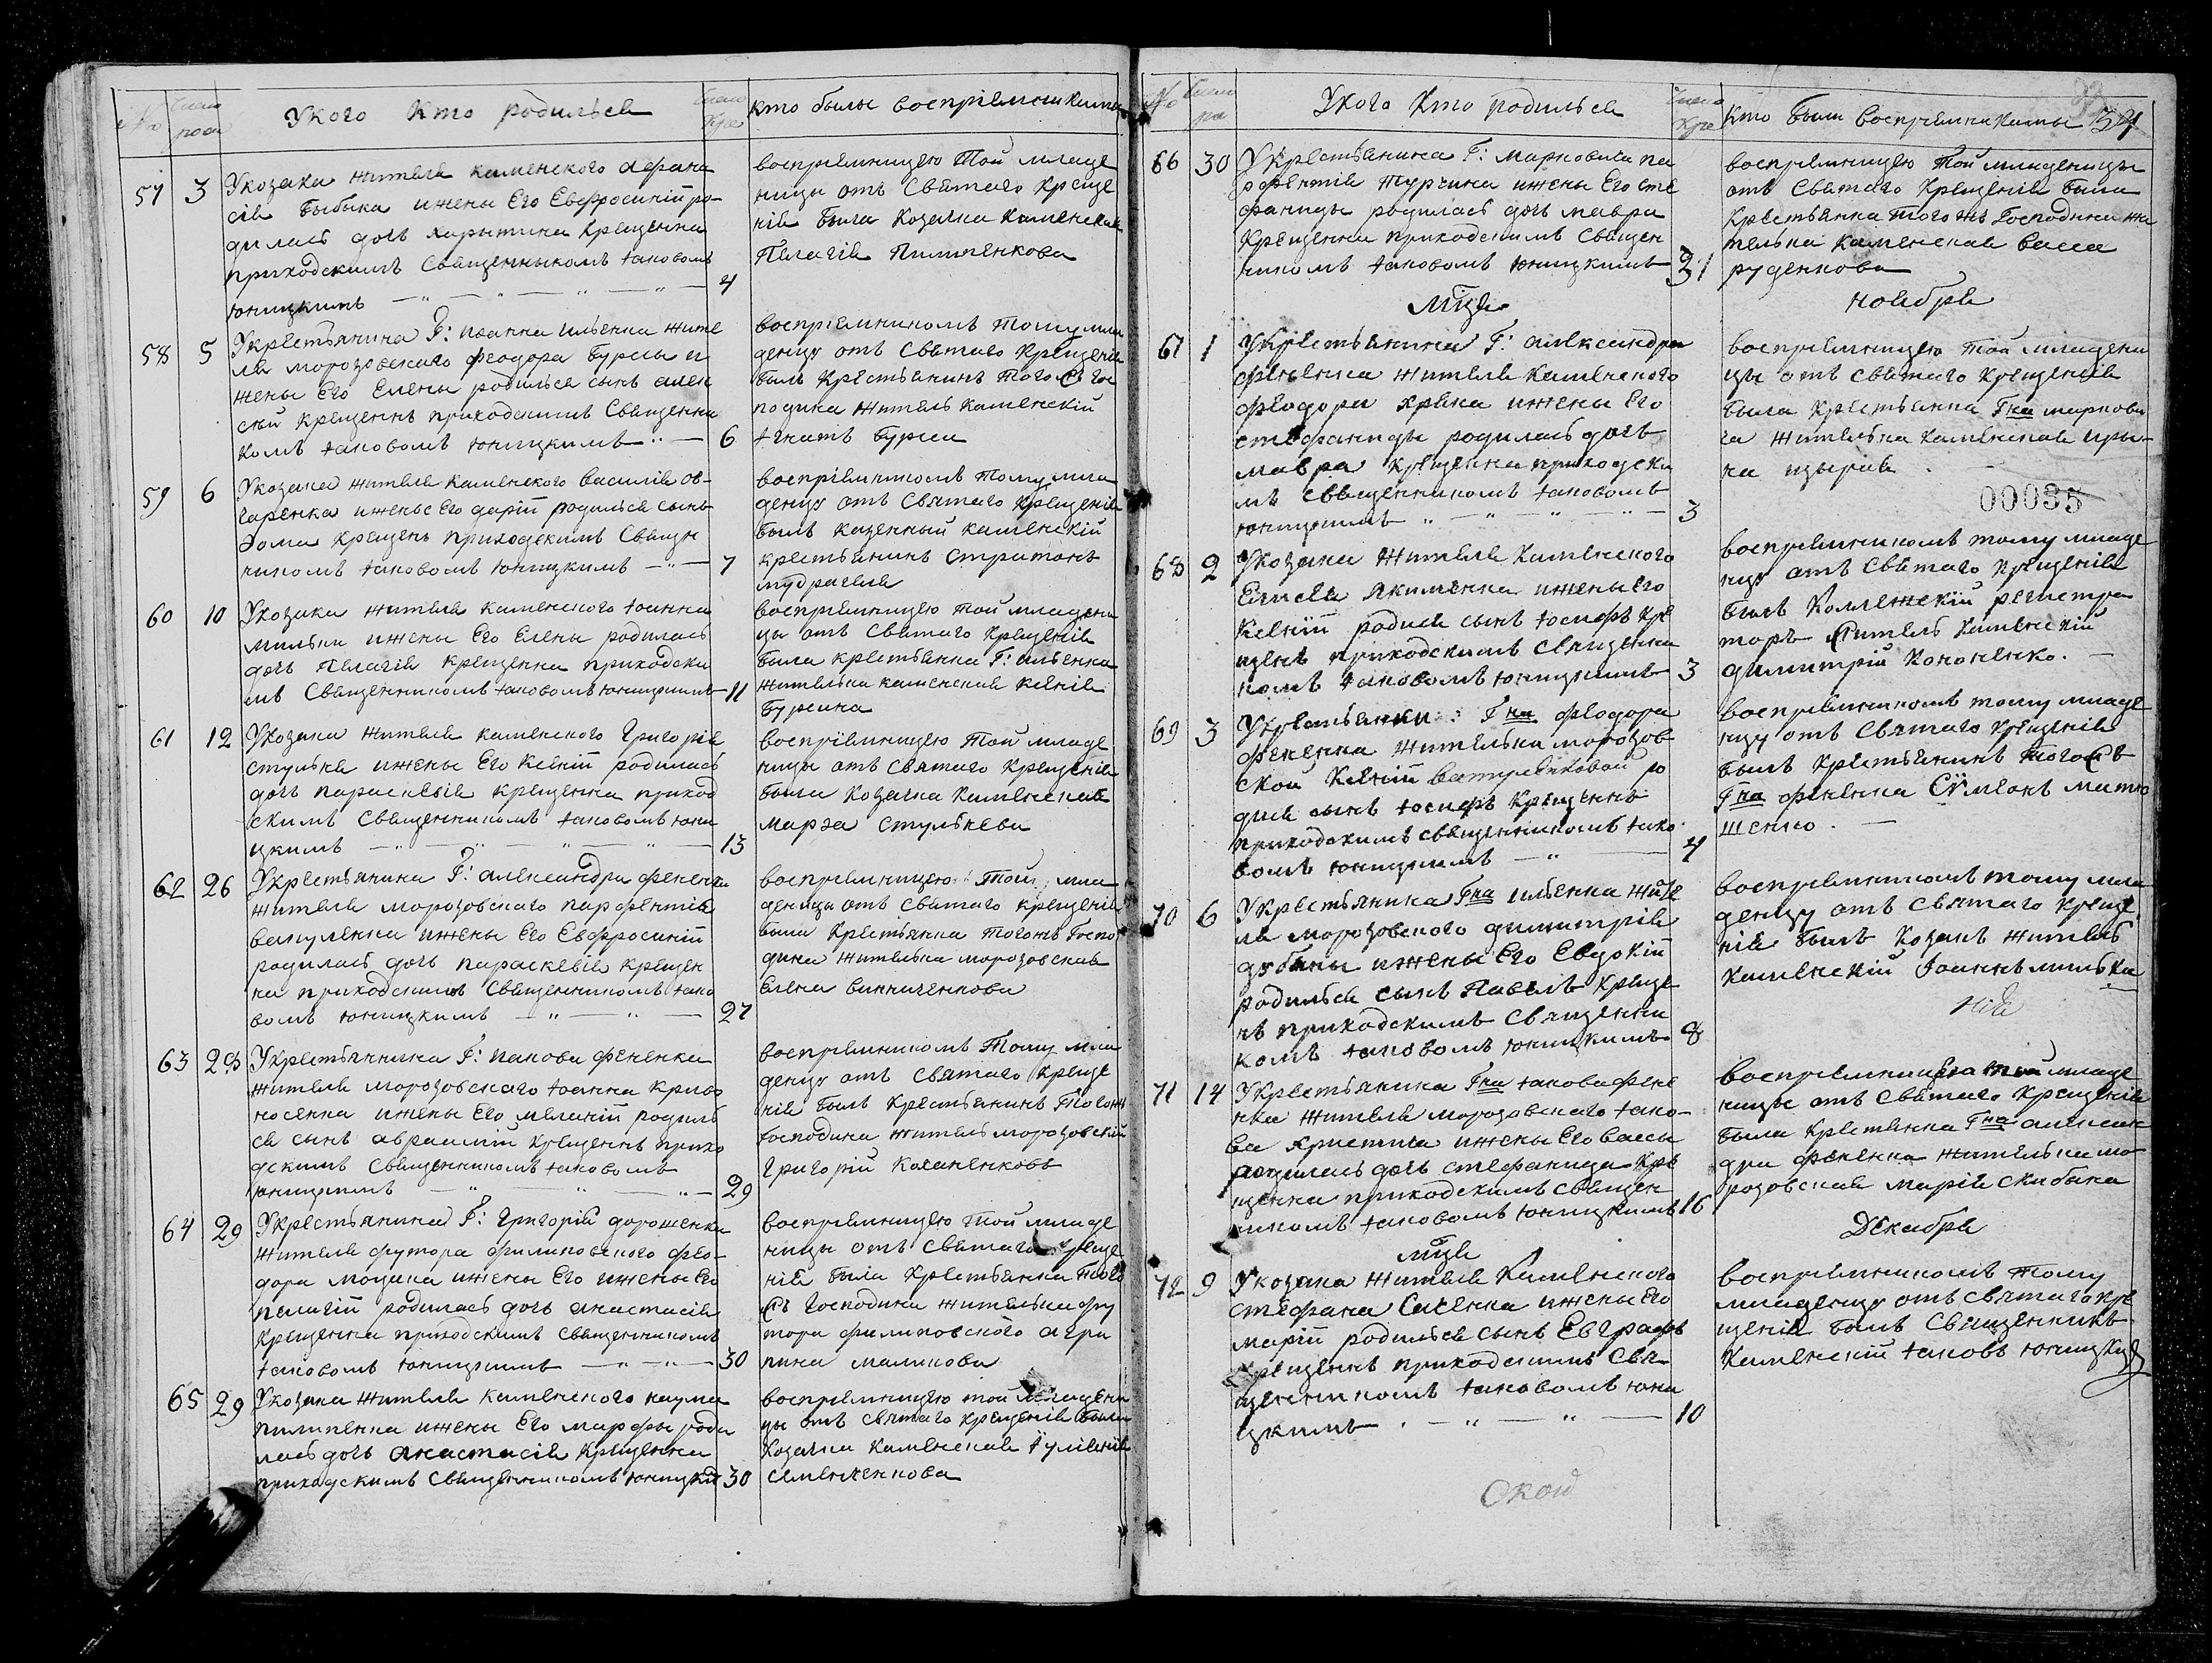 №
Число
роэ
У кого Кто родилься
Число
Кре
кто былы восприемникамы
57 3 У козака жителя каменского Афана
сія Быбика ижены Его Евфросиніи ро-
дилась дочь харытина крещенна
приходскимъ Священныкомъ Іаковомъ
Юницкимъ 4
восприемницею Той младе
ницы отъ Святаго Креще
нія была Козачка Каменская
Пелагія Пилипенкова
58 5 У крестьянина Г: Иоанна ильенка жите
ля морозовского феодора Бурсы и
жены Его Елены родилься сынъ алек
сѣй крещеннъ приходскимъ Священни
комъ Іаковомъ Юницкимъ 6
восприемникомъ Тому мла
денцу отъ Святаго Крещенія
былъ Крестьянинъ Того жъ Гос
подина житель Каменскій
Ігнатъ Бурса
59 6 У козака жителя каменского Василія Ов-
чаренка ижены Его даріи родилься сынъ
Фома крещенъ приходскимъ Священ
никомъ Іаковомъ Юницкимъ 7
восприемникомъ Тому мла
денцу отъ Святаго Крещенія
былъ казенный каменскій
крестьянинъ Стратонъ
мудрачевъ
60 10 У козака жителя каменского Іоанна
мильки ижены Его Елены родилась
дочь Пелагія крещенна приходски
мъ Священникомъ Іаковомъ Юницкимъ 11
восприемницею той младени
цы отъ Святаго Крещенія
была крестьянка Г: ильенка
жителька каменская Ксенія
Бурсина
61 12 У козака жителя каменского Григорія
стулька ижены Его Ксеніи родилась
дочь параскевія крещенна приход
скимъ Священникомъ Іаковомъ Юни
цкимъ 13
восприемницею Той младе
ницы отъ Святаго Крещенія
была Козачка Каменская
марѳа Стулькева
62 26 У крестьянина Г: александра фененка
жителя морозовского парфентія
вакуленка ижены Его Евфросиніи
родилась дочь параскевія крещен
на приходскимъ Священникомъ Іако
вомъ Юницкимъ 27
восприемницею Той мла
деницы отъ Святаго крещенія
была Крестьянка тогожъ Госпо
дина жителька морозовская
Елена винниченкова
63 28 У крестьянина Г: иакова фененка
жителя морозовского Іоанна Криво
носенка ижены Его меланіи родиль
ся сынъ авраамій крещеннъ прихо
дскимъ Священникомъ Іаковомъ
Юницкимъ 29
восприемникомъ Тому мла
денцу отъ Святаго Креще
нія былъ Крестьянинъ Тогожъ
Господина житель морозовскій
Григорій Коханенковъ
64 29 У крестьянина Г: Григорія дорошенка
жителя футора филиповского фео-
дора моцака ижены Его ижены Его
пелагіи родилась дочь анастасія
крещенна приходскимъ Священникомъ
Іаковомъ Юницкимъ 30
восприемницею той младе
ницы отъ Святаго Креще
нія была Крестьянка того
жъ Господина жителька фу
тора филиповского агри
пина маликова
65 29 У козака жителя каменского наума
пилипенка ижены Его марфы роди
лась дочь анастасія крещенна
приходскимъ Священникомъ Юницким 30
восприемницею той младени
цы отъ Святаго Крещенія была
Козачка Каменская Іуліанія
семенченкова
№
Число
ро
У кого Кто родилься
Число
Кре
кто были восприемникамы 34
66 30 У крестьянина Г: марковича па
рфентія Турчина ижены Его сте
фаниды родилась дочь мавра
Крещенна приходскимъ Священ
никомъ Іаковомъ Юницкимъ 31
восприемницею той младеницы
отъ Святаго Крещенія была
Крестьянка того жъ Господина жи
телька Каменская васса
руденкова
мца ноября
67 1 У крестьянина Г: александра
фененка жителя Каменского
феодора хрѣна ижены Его
стефаниды родилась дочь
мавра крещенна приходски
мъ священникомъ Іаковомъ
Юницкимъ 3
восприемницею той младени
цы отъ Святаго Крещенія
была Крестьянка Гна маркови
ча жителька Каменская ири-
на
00035
68 2 У козака жителя Каменского
Елисея якименка ижены Его
Ксеніи родися сынъ Іосифъ кре
щенъ приходскимъ священни
комъ Іаковомъ Юницкимъ 3
восприемникомъ тому младе
нцу отъ Святаго Крещенія
былъ Коллежскій регистра
торъ житель Каменскій
димитрій Кононенко.
69 3 У крестьянки Гна феодора
фененка жителька морозов
ской Ксеніи ро
дися сынъ Іосифъ крещеннъ
приходскимъ священникомъ Іако
вомъ Юницкимъ 4
восприемникомъ тому младе
нцу отъ Святаго Крещенія
былъ крестьянинъ того жъ
Гна фененка Сѵмеонъ матю
шенко.
70 6 У крестьянина Гна ильенка жите
ля морозовского димитрія
дубыны ижены Его Евдокіи
родилься сынъ Павелъ креще
нъ приходскимъ священни
комъ Іаковомъ Юницкимъ 8
восприемникомъ тому мла
денцу отъ Святаго Креще
нія былъ Козакъ житель
Каменскій Іоаннъ милька
71 14 У крестьянина Гна Іакова фене
нка жителя морозовского Іако-
ва христича ижены Его вассы
родилась дочь стефанида кре
щенна приходскимъ священ
никомъ Іаковомъ Юницкимъ 16
восприемницею той младе
ницы отъ Святаго Крещенія
была Крестянка Гна алексан
дра фененка жителька мо
розовская марія скибина
мца Декабря
72 9 У козака жителя Каменского
стефана Сиченка ижены Его
маріи родилься сынъ Евграфъ
крещеннъ приходскимъ Свя
щенникомъ Іаковомъ Юни
цкимъ 10
восприемникомъ тому
младенцу отъ Святаго кре
щенія былъ Священникъ
Каменскій Іаковъ Юницкій